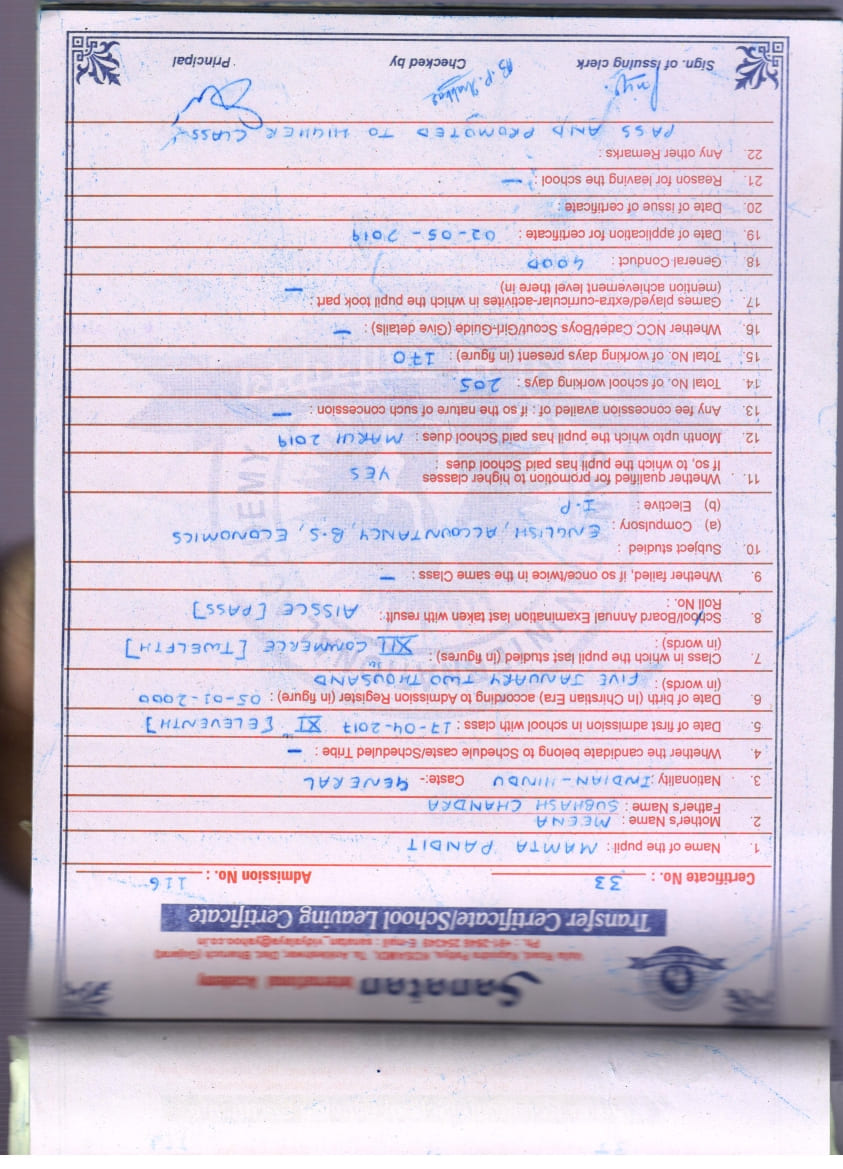 Sanatan International Academy
Transfer Certificate/School Leaving Certificate
Certificate No. : 33 Admission No. : 116
1. Name of the pupil : MAMTA PANDIT
2. Mother's Name : MEENA
Father's Name : SUBHASH CHANDRA
3. Nationality : INDIAN-HINDU Caste:- GENERAL
4. Whether the candidate belong to Schedule caste/Scheduled Tribe : —
5. Date of first admission in school with class : 17-04-2017 XI [ELEVENTH]
6. Date of birth (In Chirstian Era) according to Admission Register (in figure) : 05-01-2000
(in words) : FIVE JANUARY TWO THOUSAND
7. Class in which the pupil last studied (in figures) : XII COMMERCE [TWELFTH]
(in words) :
8. School/Board Annual Examination last taken with result : AISSCE [PASS]
Roll No. :
9. Whether failed, if so once/twice in the same Class : —
10. Subject studied :
(a) Compulsory : ENGLISH, ACCOUNTANCY, B.S, ECONOMICS
(b) Elective : I.P
11. Whether qualified for promotion to higher classes YES
If so, to which the pupil has paid School dues :
12. Month upto which the pupil has paid School dues : MARCH 2019
13. Any fee concession availed of : if so the nature of such concession : —
14. Total No. of school working days : 205
15. Total No. of working days present (in figure) : 170
16. Whether NCC Cadet/Boys Scout/Girl-Guide (Give details) : —
17. Games played/extra-curricular-activites in which the pupil took part :
(mention achievement level there in) —
18. General-Conduct : GOOD
19. Date of application for certificate : 02-05-2019
20. Date of issue of certificate :
21. Reason for leaving the school : —
22. Any other Remarks :
PASS AND PROMOTED TO HIGHER CLASS
Sign. of. Issuing clerk Checked by Principal